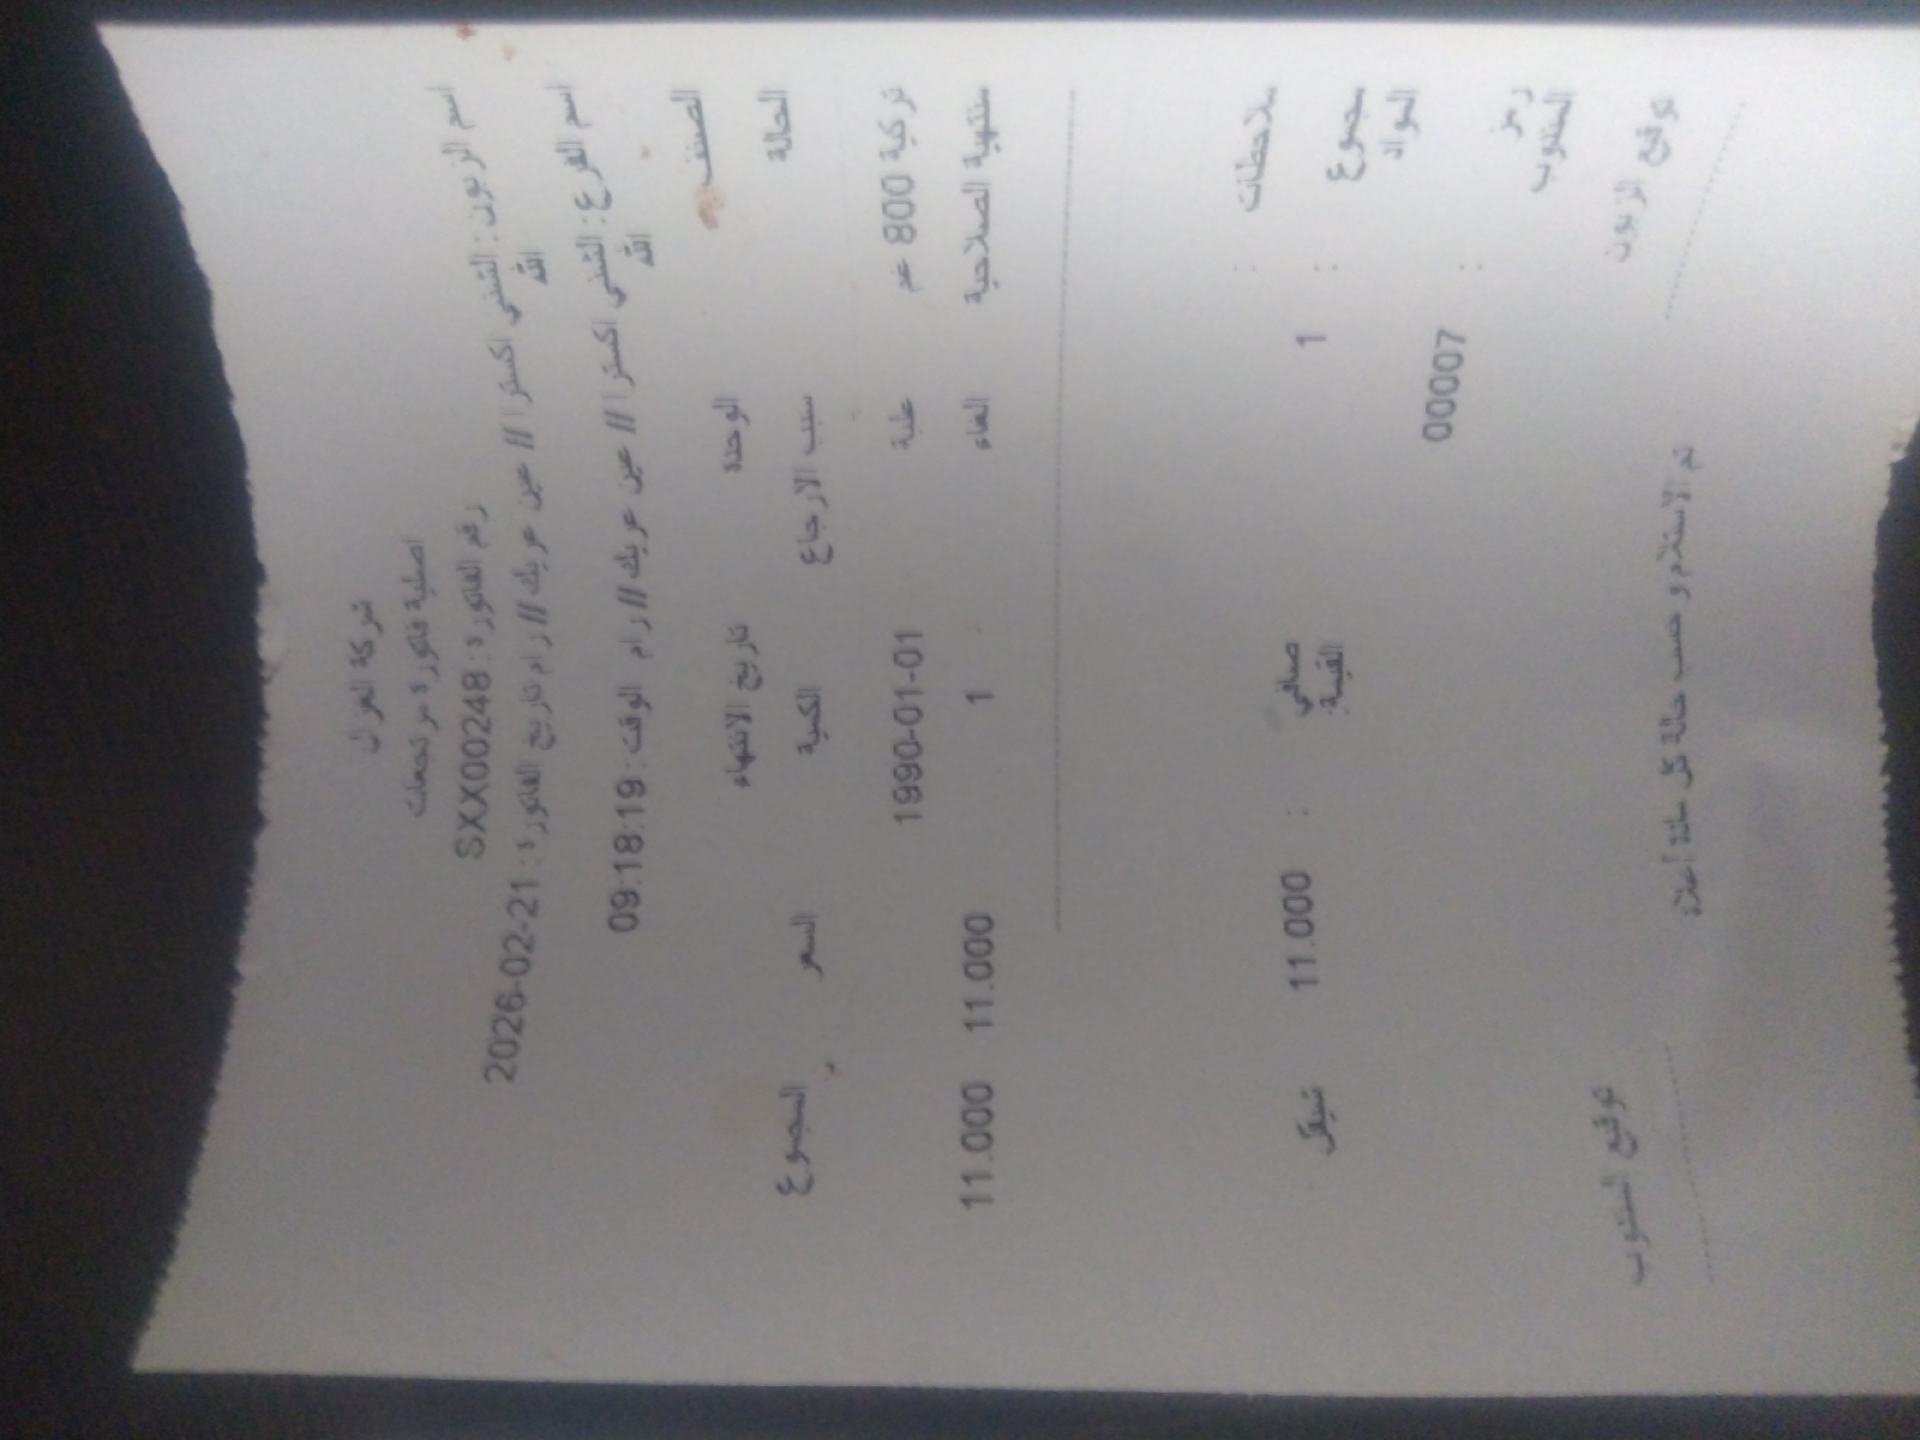 شركة الغزال
اصلية فاتورة مرتجعات
رقم الفاتورة: SXX00248
اسم الزبون: التنني اكسترا // عين عريك // رام الله تاريخ الفاتورة: 2026-02-21
اسم الفرع: التنني اكسترا // عين عريك // رام الله الوقت: 09:18:19
الصنف الوحدة تاريخ الانتهاء
الحالة سبب الارجاع الكمية السعر المجموع
تركية 800 غم علبة 1990-01-01
منتهية الصلاحية الغاء 1 11.000 11.000
ملاحظات :
مجموع المواد : 1 صافي القيمة: : 11.000 شيقل
رمز المندوب : 00007
تم الاستلام و حسب حالة كل مادة أعلاه
توقيع الزبون توقيع المندوب